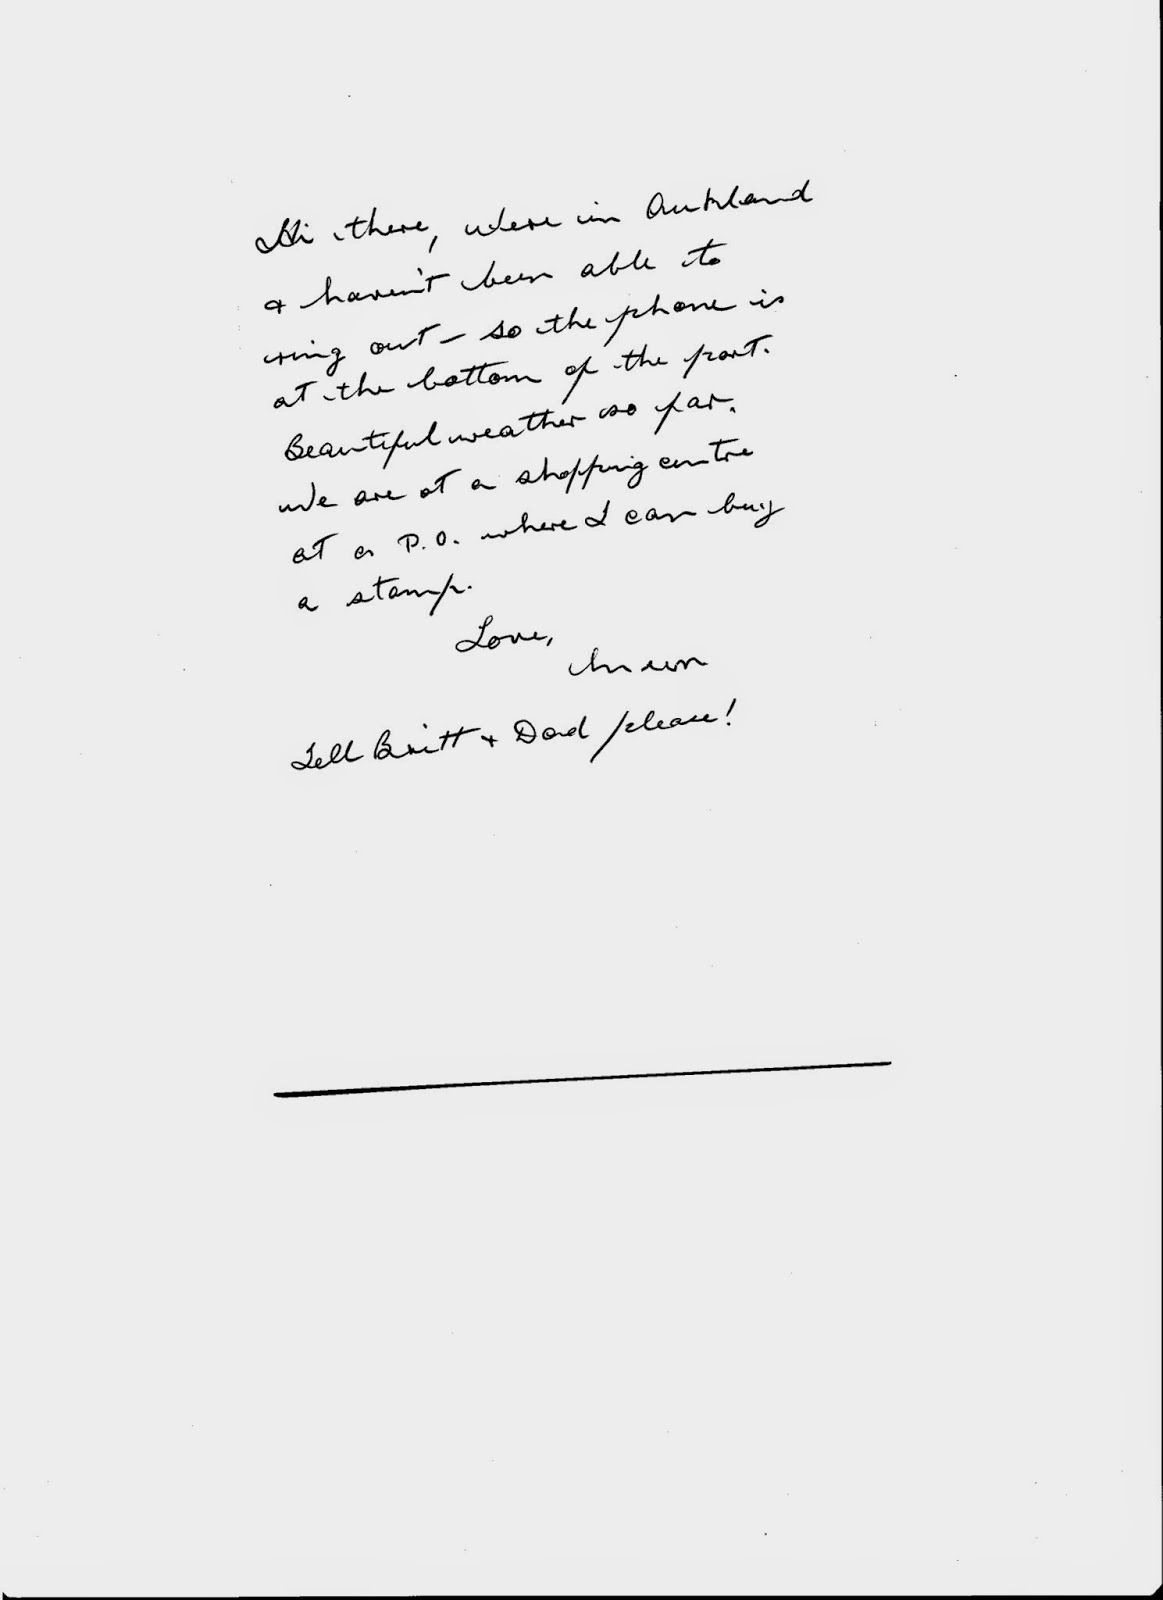 Hi there, we're in Auckland
& haven't been able to
ring out – so the phone is
at the bottom of the port.
Beautiful weather so far.
We are at a shopping centre
at a P.O. where I can buy
a stamp.
Love,
Mum
Tell Britt + Dad please!